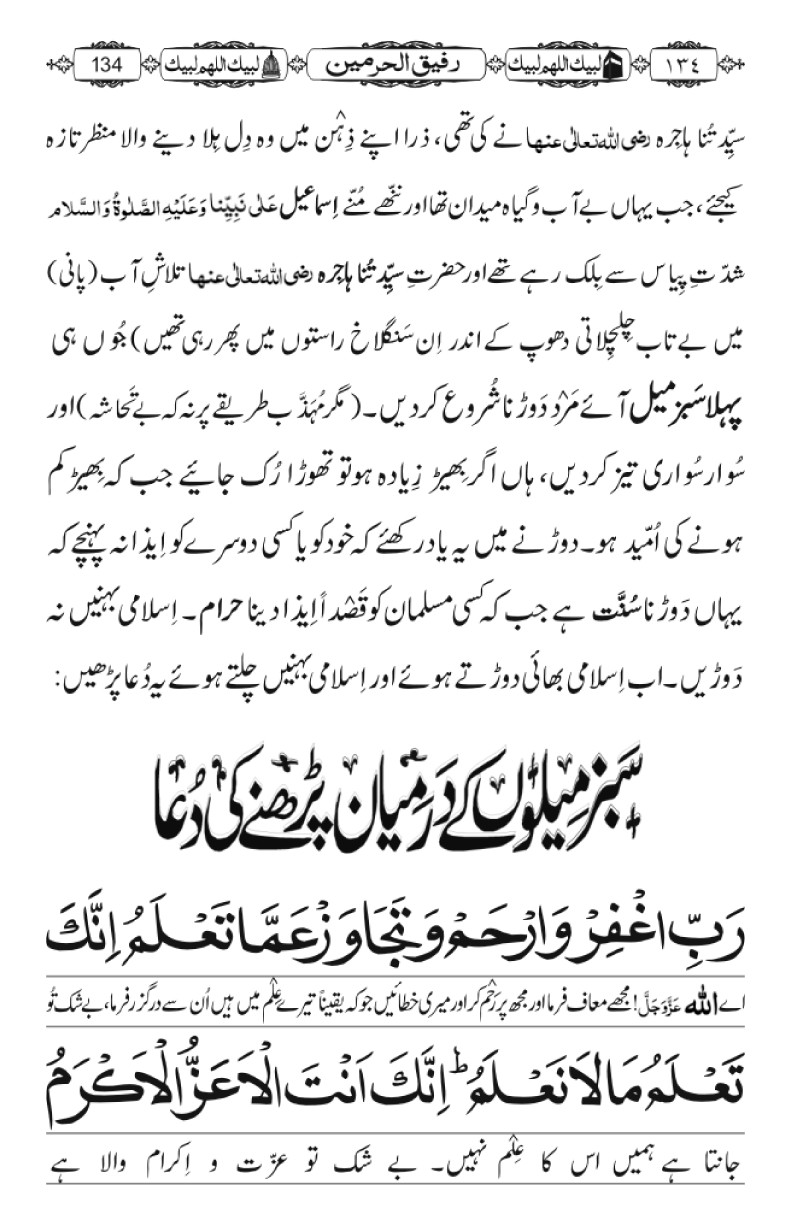 ١٣٤ لبیک اللھم لبیک رفیق الحرمین لبیک اللھم لبیک 134
سیِّدتُنا ہاجرہ رضی اللہ تعالٰی عنھا نے کی تھی، ذرا اپنے ذِہْن میں وہ دِل ہِلا دینے والا منظر تازہ
کیجئے، جب یہاں بے آب و گیاہ میدان تھا اور ننّھے مُنّے اِسماعیل عَلٰی نَبِیِّنا وَعَلَیْہِ الصَّلٰوۃُ وَالسَّلام
شدّتِ پیاس سے بِلک رہے تھے اور حضرتِ سیِّدتُنا ہاجرہ رضی اللہ تعالٰی عنھا تلاشِ آب (پانی)
میں بے تاب چِلچِلاتی دھوپ کے اندر اِن سَنگلاخ راستوں میں پھر رہی تھیں) جُوں ہی
پہلا سَبز مِیل آئے مَرْد دَوڑنا شُروع کردیں۔ (مگر مُہَذَّب طریقے پر نہ کہ بے تَحاشہ) اور
سُوار سُواری تیز کردیں، ہاں اگر بھیڑ زِیادہ ہو تو تھوڑا رُک جائیے جب کہ بھیڑ کم
ہونے کی اُمّید ہو۔ دوڑنے میں یہ یاد رکھئے کہ خود کو یا کسی دوسرے کو اِیذا نہ پہنچے کہ
یہاں دَوڑنا سُنَّت ہے جب کہ کسی مسلمان کو قَصْداً اِیذا دینا حرام۔ اِسلامی بہنیں نہ
دَوڑیں۔ اب اِسلامی بھائی دوڑتے ہوئے اور اِسلامی بہنیں چلتے ہوئے یہ دُعا پڑھیں:
سَبز مِیلوں کے دَرمِیان پڑھنے کی دُعا
رَبِّ اغْفِرْ وَارْحَمْ وَتَجَاوَزْ عَمَّا تَعْلَمُ اِنَّكَ
اے اللہ عَزَّوَجَلَّ! مجھے معاف فرما اور مجھ پر رَحْم کر اور میری خطائیں جو کہ یقیناً تیرے عِلْم میں ہیں اُن سے درگزر فرما، بے شک تُو
تَعْلَمُ مَا لَا نَعْلَمُ ؕ اِنَّكَ اَنْتَ الْاَعَزُّ الْاَكْرَمُ
جانتا ہے ہمیں اس کا عِلْم نہیں۔ بے شک تو عزّت و اِکرام والا ہے